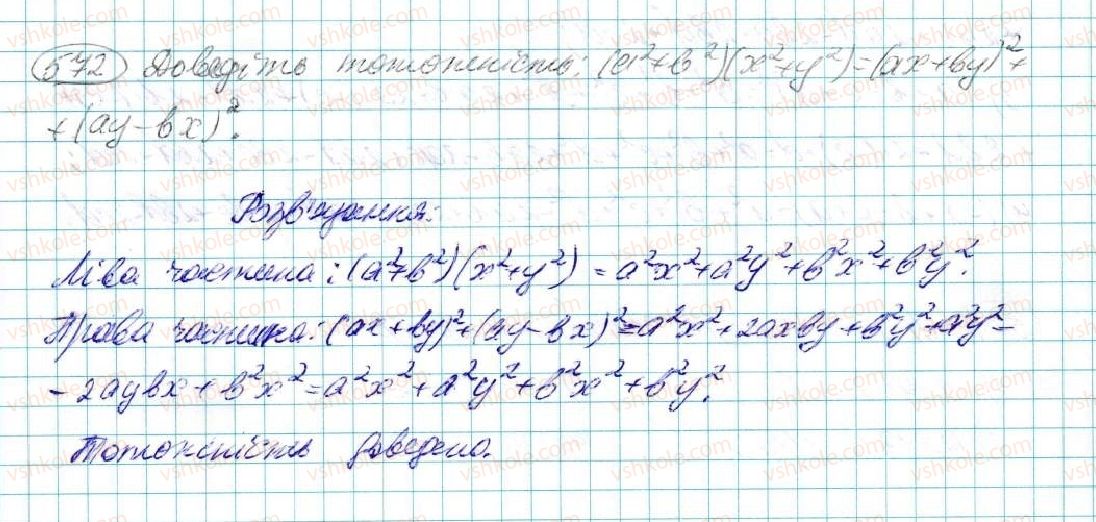 572 Доведіть тотожність: (a²+b²)(x²+y²)=(ax+by)²+
+(ay-bx)².
Розв'язання:
Ліва частина: (a²+b²)(x²+y²) = a²x²+a²y²+b²x²+b²y².
Права частина: (ax+by)²+(ay-bx)²=a²x²+2axby+b²y²+a²y²-
-2aybx+b²x²=a²x²+a²y²+b²x²+b²y².
Тотожність доведено.